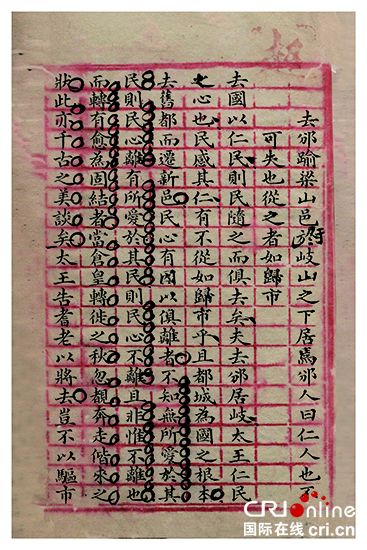 去邠踰梁山邑於岐山之下居焉邠人曰仁人也不
可失也從之者如歸市
去國以仁民則民隨之而俱去矣夫去邠居岐太王仁民
之心也民感其仁有不從如歸市乎且都城為國之根本
去舊都而遷新邑民心有因以俱離者不知無所愛於其
民則民心離有所愛於其民則民心不離且非惟不離也
而轉有愈為固結者當倉皇轉徙之秋忽覩奔走偕來之
狀此亦千古之美談矣太王告耆老以將去豈不以驅市
CRI online
国际在线 cri.cn